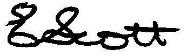 E Scott